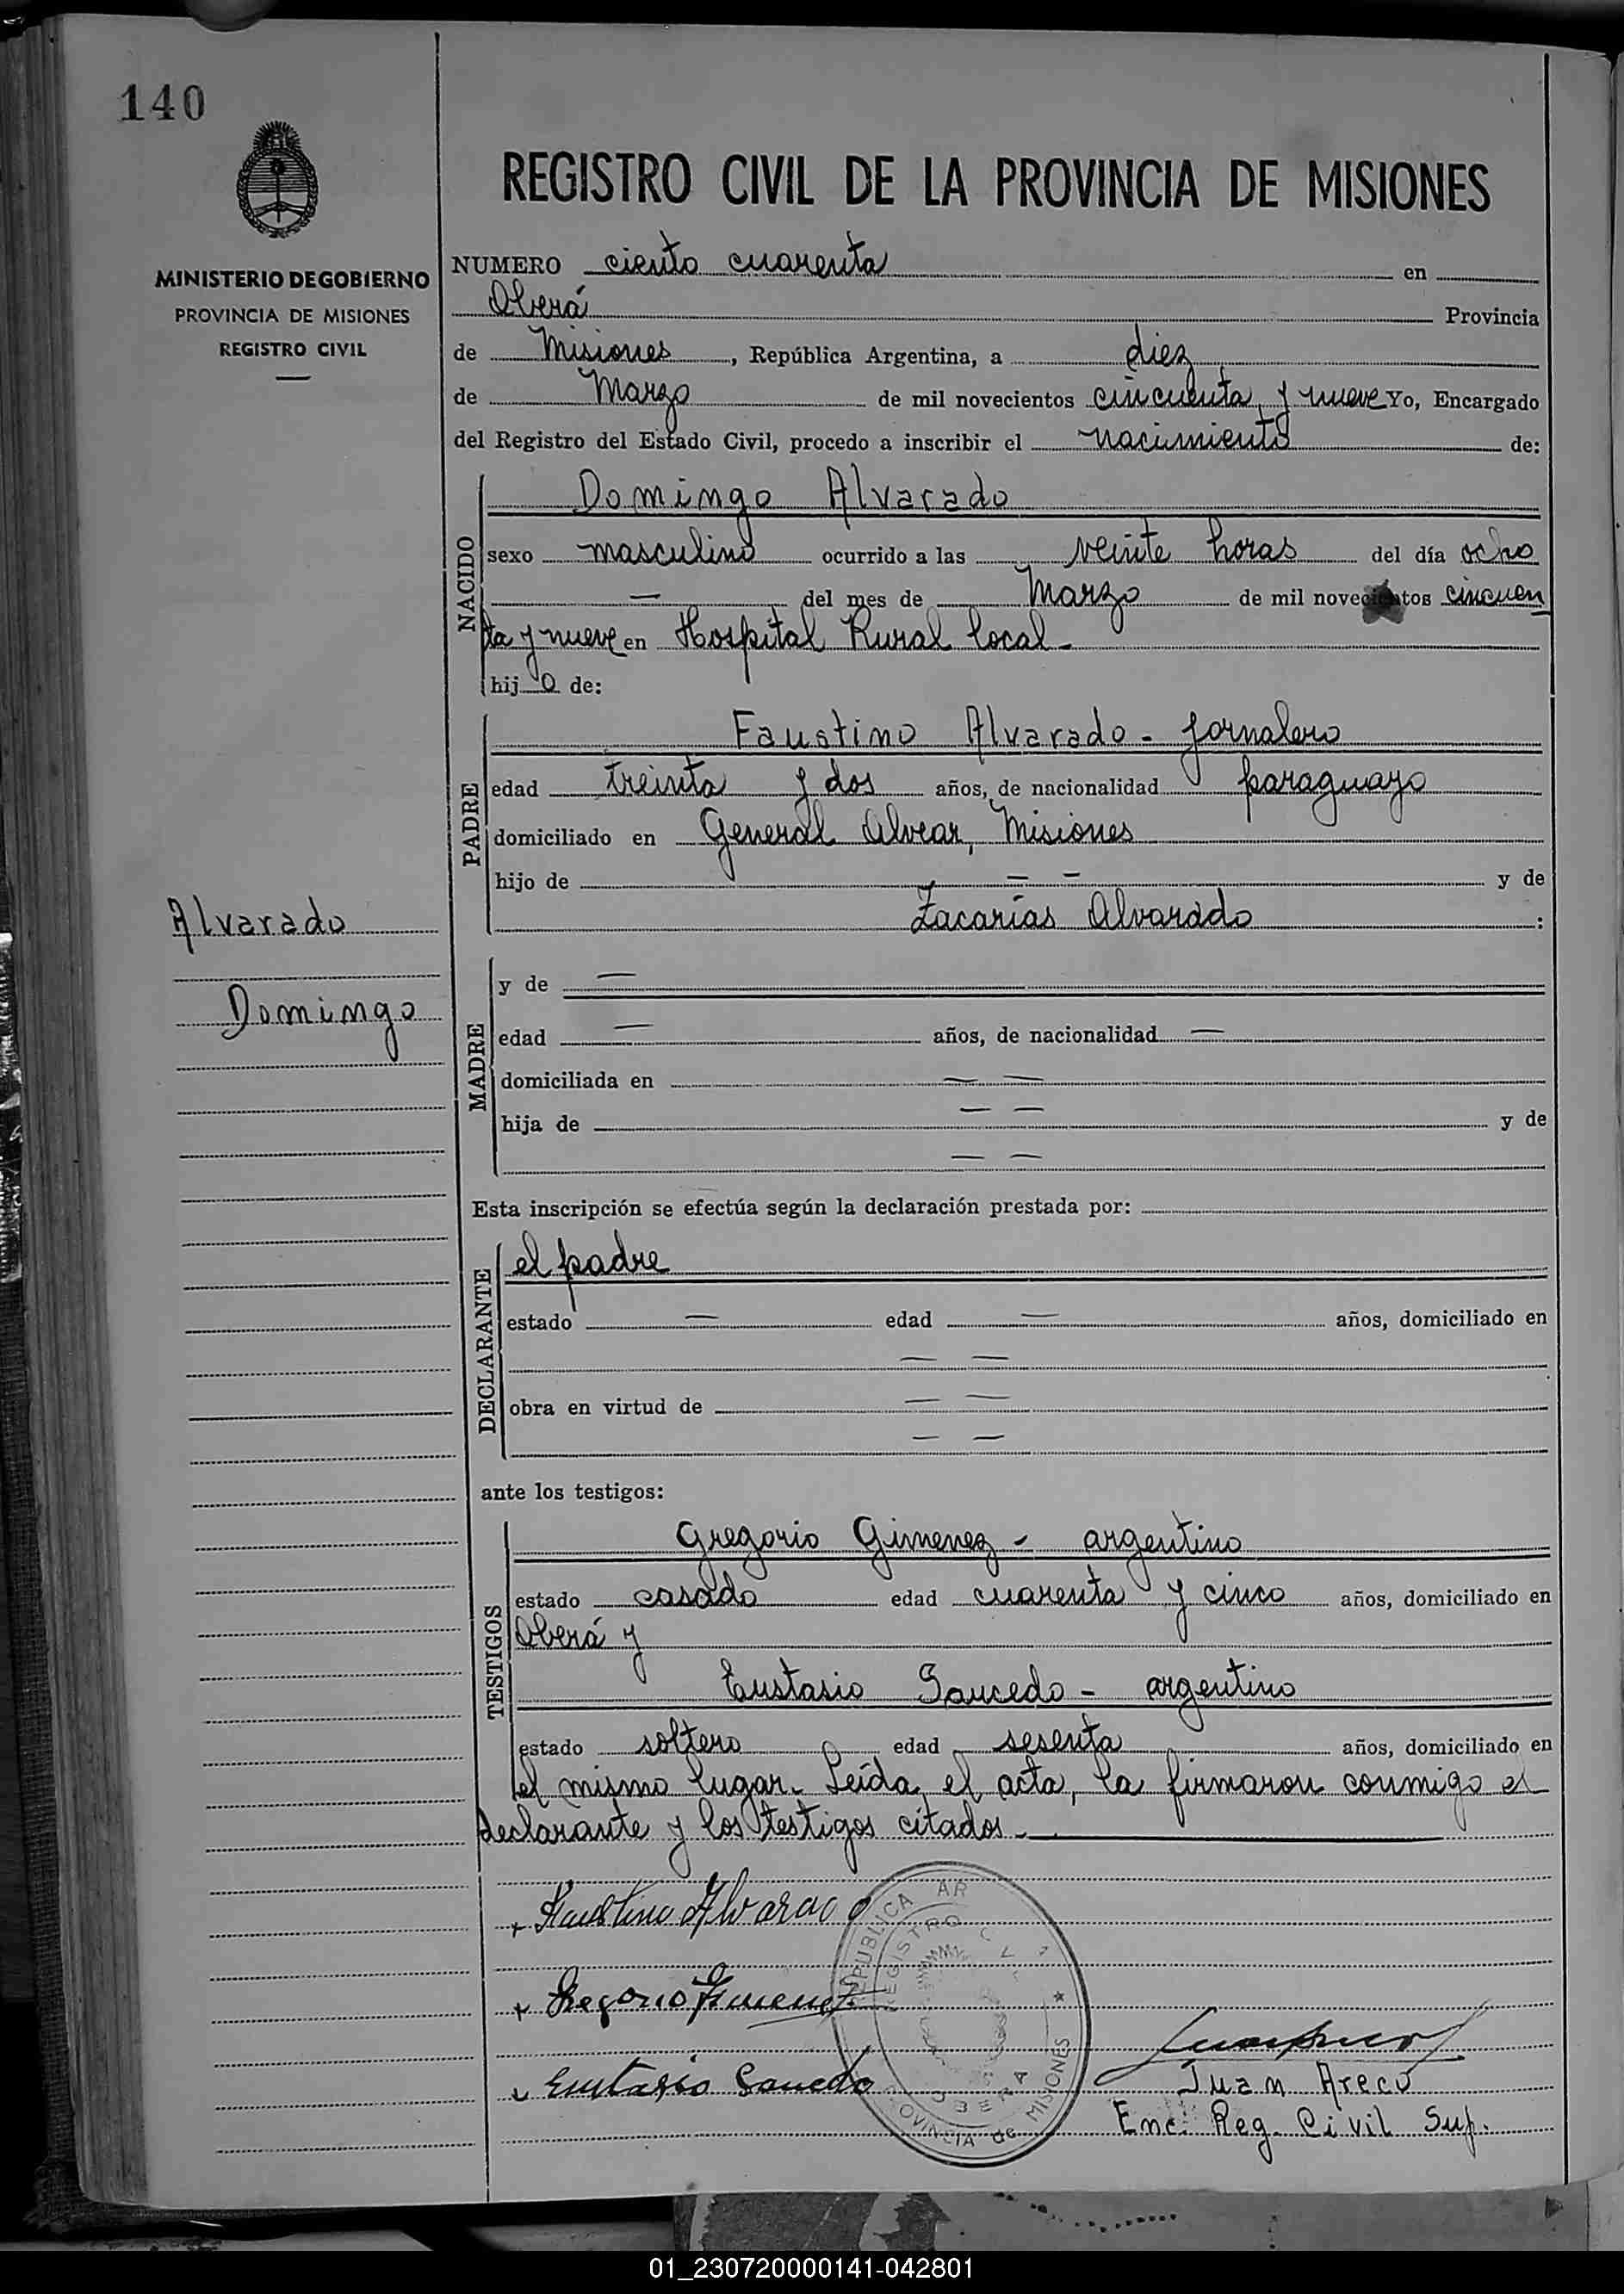 140
REGISTRO CIVIL DE LA PROVINCIA DE MISIONES
MINISTERIO DE GOBIERNO
PROVINCIA DE MISIONES
REGISTRO CIVIL
NUMERO ciento cuarenta en
Oberá Provincia
de Misiones, República Argentina, a diez
de Marzo de mil novecientos cincuenta y nueve Yo, Encargado
del Registro del Estado Civil, procedo a inscribir el nacimiento de:
NACIDO
Domingo Alvarado
sexo masculino ocurrido a las veinte horas del día ocho
— del mes de Marzo de mil novecientos cincuen
ta y nueve en Hospital Rural local -
hijo de:
PADRE
Faustino Alvarado - jornalero
edad treinta y dos años, de nacionalidad paraguayo
domiciliado en General Alvear, Misiones
hijo de — — y de
Zacarías Alvarado :
Alvarado
Domingo
MADRE
y de —
edad — años, de nacionalidad —
domiciliada en — —
hija de — — y de
— —
Esta inscripción se efectúa según la declaración prestada por:
DECLARANTE
el padre
estado — edad — años, domiciliado en
— —
obra en virtud de — —
— —
ante los testigos:
TESTIGOS
Gregorio Gimenez - argentino
estado casado edad cuarenta y cinco años, domiciliado en
Oberá y
Eustasio Saucedo - argentino
estado soltero edad sesenta años, domiciliado en
el mismo lugar. Leída el acta, la firmaron conmigo el
declarante y los testigos citados -
x Faustino Alvarado
x Gregorio Gimenez
x Eustasio Saucedo
REPUBLICA AR
REGISTRO CIVIL
OBERA
PROVINCIA de MISIONES
Juan Areco
Enc. Reg. Civil Sup.
01_230720000141-042801